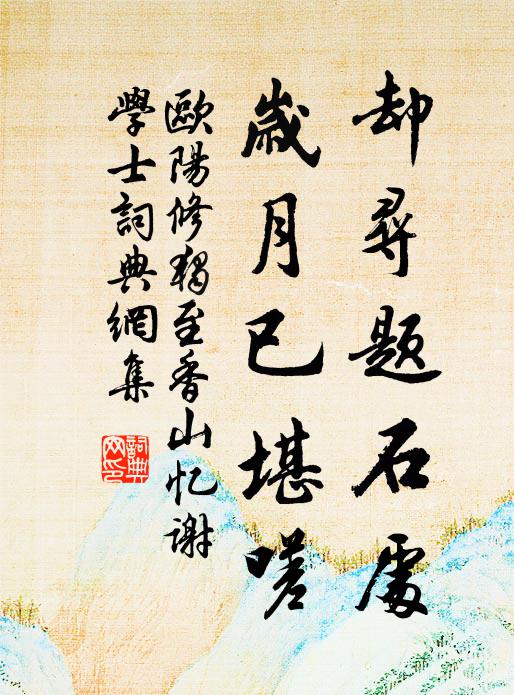 却尋題石處
歲月已堪嗟
歐陽修獨至香山忆谢
學士詞典網集
詞典網印